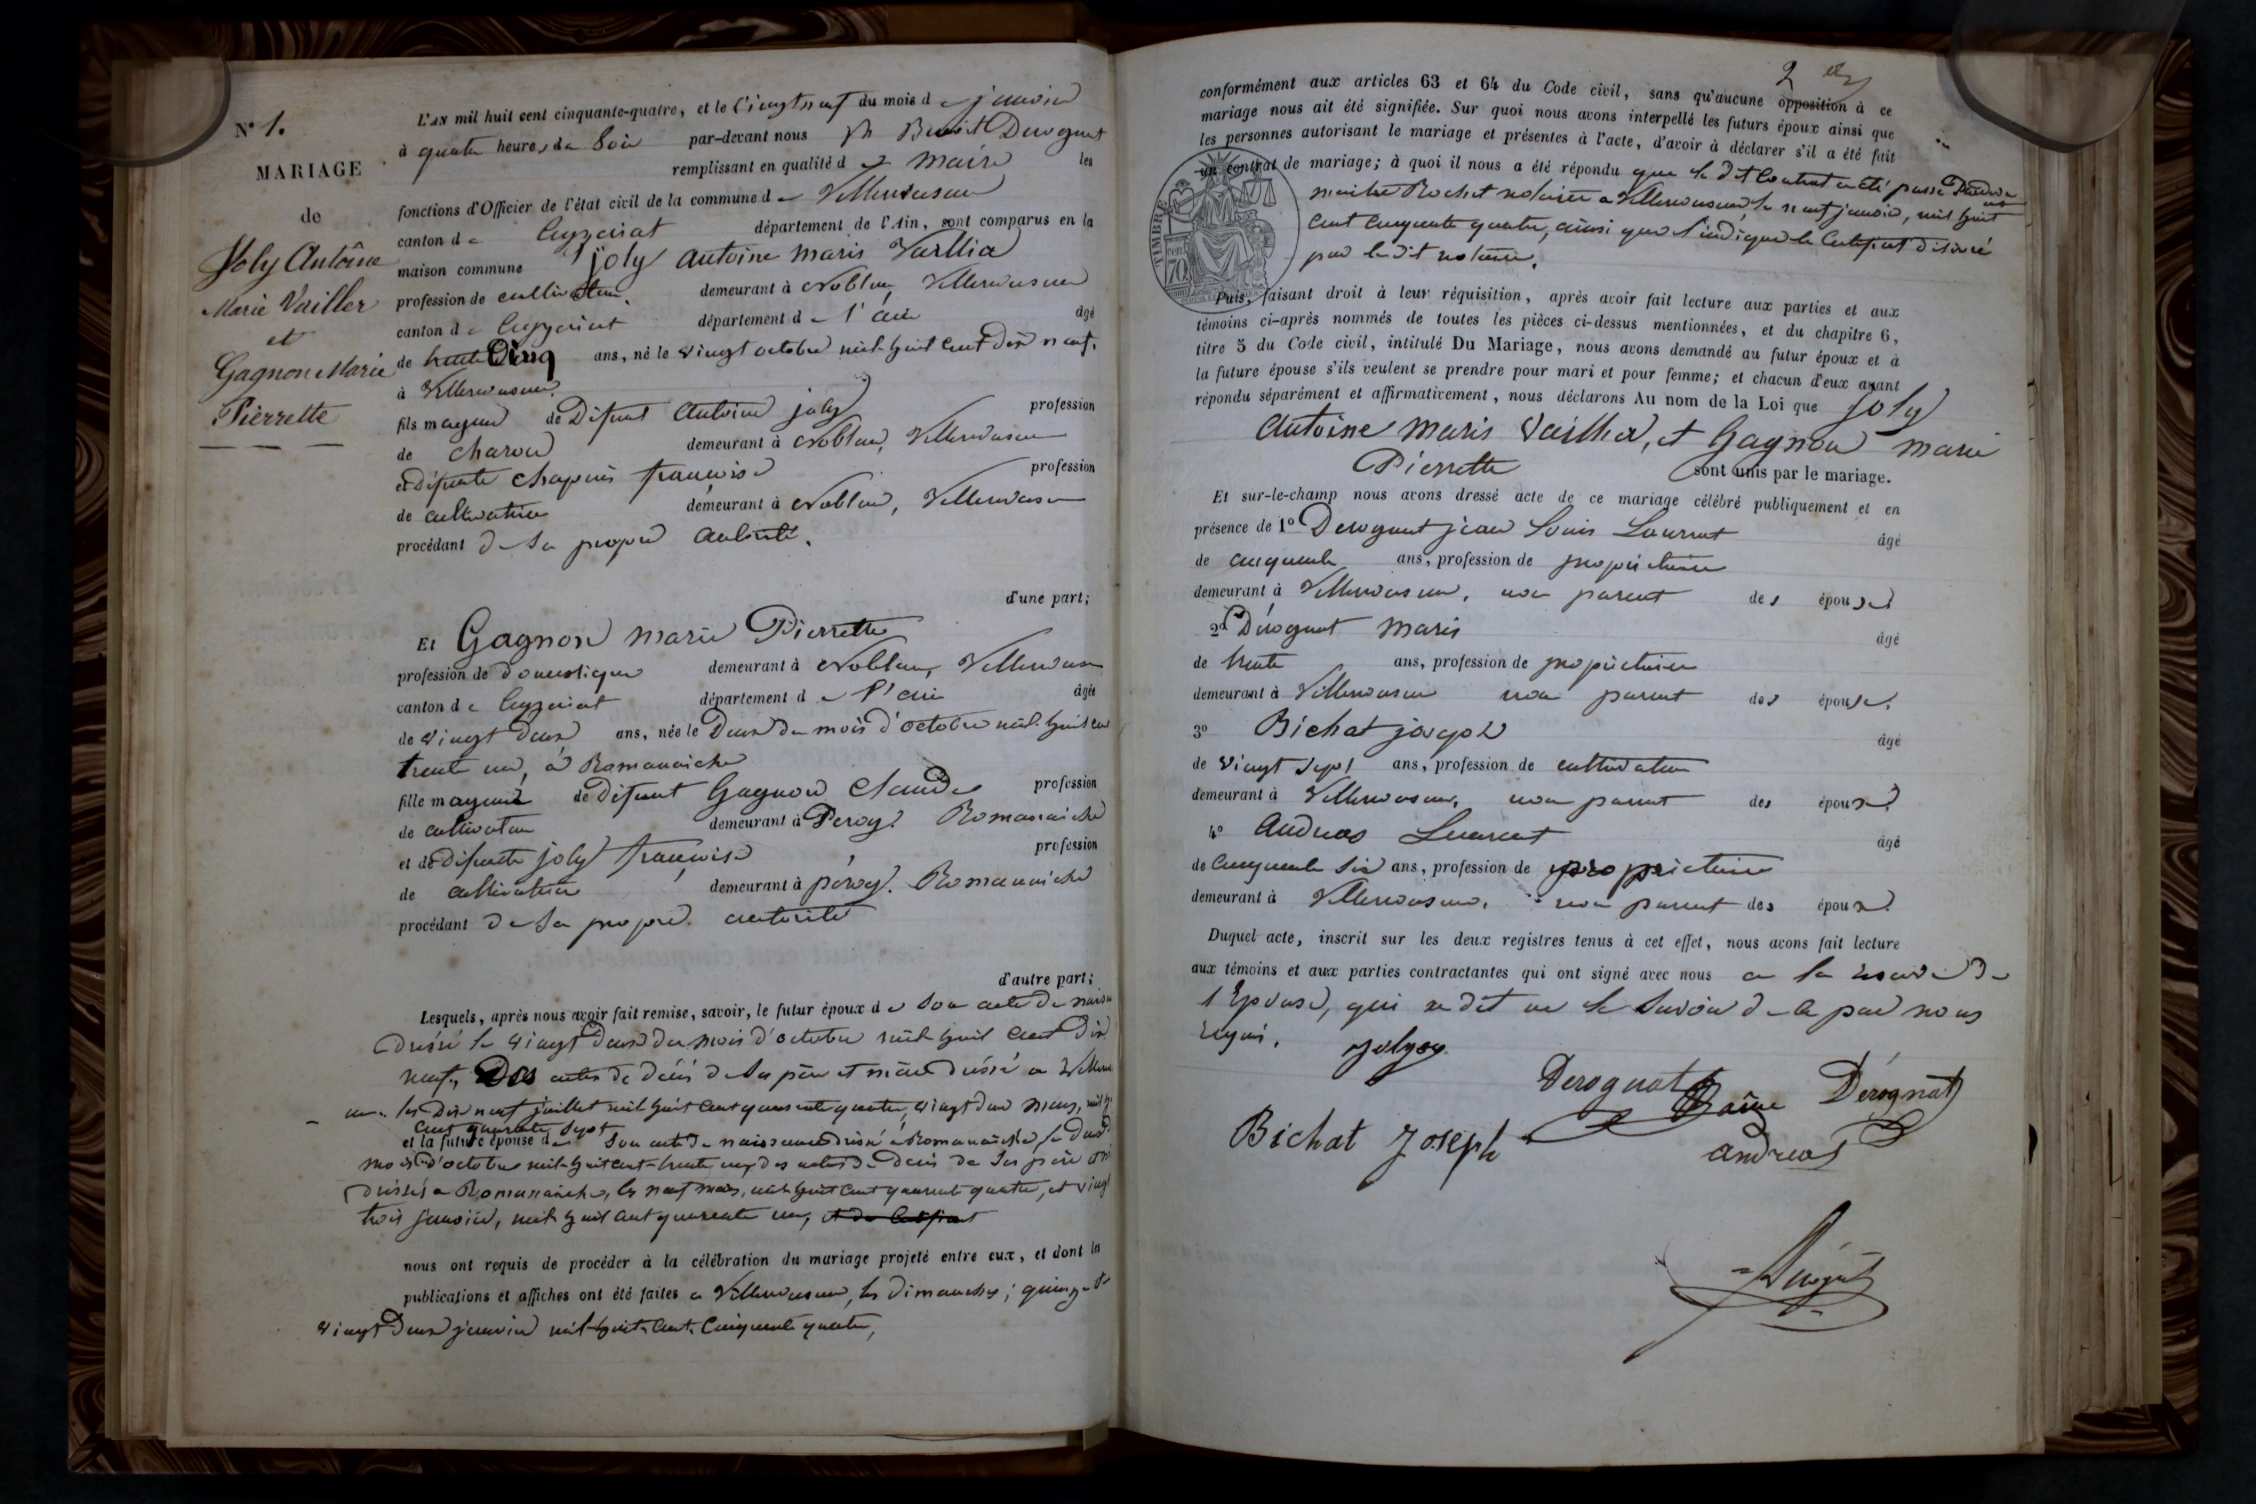 N° 1.
MARIAGE
de
Joly Antoine
Marie Vailler
et
Gagnon Marie
Pierrette
L'AN mil huit cent cinquante-quatre, et le vingt neuf du mois de janvier
à quatre heures du soir par-devant nous Benoit Derognat
remplissant en qualité de maire les
fonctions d'Officier de l'état civil de la commune de Villereversure
canton de Ceyzeriat département de l'Ain, sont comparus en la
maison commune joly antoine marie
profession de cultivateur. demeurant à Noblens, Villereversure
canton de Ceyzeriat département de l'ain âgé
de trente Cinq ans, né le vingt octobre mil huit cent dix neuf.
à Villereversure.
fils majeur de Défunt antoine joly profession
de charon demeurant à Noblens, Villereversure
et défunte chapuis françoise profession
de cultivatrice demeurant à Noblens, Villereversure
procédant de sa propre autorité.
d'une part;
Et Gagnon marie Pierrette
profession de domestique demeurant à Noblens, Villereversure
canton de Ceyzeriat département de l'ain âgée
de vingt deux ans, née le Deux du mois d'octobre mil huit cent
trente un, à Romanaiche
fille majeure de défunt Gagnon Claude profession
de cultivateur demeurant à Romanaiche
et de défunte joly françoise profession
de cultivatrice demeurant à Romanaiche
procédant de sa propre autorité
d'autre part;
Lesquels, après nous avoir fait remise, savoir, le futur époux de son acte de
Dréssé le vingt Deux du mois d'octobre mil huit cent Dix
neuf, Des actes de décès de ses père et mère dréssé a
les Dix neuf juillet mil huit cent quarante quatre, vingt deux mars,
cent quarante sept
et la future épouse de son acte de naissance dréssé à Romanaiche le deux
mois d'octobre mil huit cent trente un, des actes de décès de ses père
Dréssés a Romanaiche, les neuf mars, mil huit cent quarante quatre, et vingt
trois janvier, mil huit cent quarante un, et du certificat
nous ont requis de procéder à la célébration du mariage projeté entre eux, et dont les
publications et affiches ont été faites a Villereversure, les dimanches; quinze et
vingt Deux janvier mil huit cent cinquante quatre,
2
conformément aux articles 63 et 64 du Code civil, sans qu'aucune opposition à ce
mariage nous ait été signifiée. Sur quoi nous avons interpellé les futurs époux ainsi que
les personnes autorisant le mariage et présentes à l'acte, d'avoir à déclarer s'il a été fait
un contrat de mariage; à quoi il nous a été répondu que le dit Contrat a été passé
maitre Rochet notaire a Villereversure, le neuf janvier, mil huit
cent cinquante quatre, ainsi que l'indique le certificat délivré
par le dit notaire.
TIMBRE
70
Puis, faisant droit à leur réquisition, après avoir fait lecture aux parties et aux
témoins ci-après nommés de toutes les pièces ci-dessus mentionnées, et du chapitre 6,
titre 5 du Code civil, intitulé Du Mariage, nous avons demandé au futur époux et à
la future épouse s'ils veulent se prendre pour mari et pour femme; et chacun d'eux ayant
répondu séparément et affirmativement, nous déclarons Au nom de la Loi que Joly
antoine marie Vailler, et Gagnon marie
Pierrette sont unis par le mariage.
Et sur-le-champ nous avons dressé acte de ce mariage célébré publiquement et en
présence de 1° Derognat jean Louis Laurent âgé
de cinquante ans, profession de propriétaire
demeurant à Villereversure, non parent des époux
2° Dérognat marie âgé
de trente ans, profession de propriétaire
demeurant à Villereversure non parent des époux.
3° Bichat joseph âgé
de vingt sept ans, profession de cultivateur
demeurant à Villereversure, non parent des époux
4° andreas Laurent âgé
de cinquante six ans, profession de propriétaire
demeurant à Villereversure, non parent des époux.
Duquel acte, inscrit sur les deux registres tenus à cet effet, nous avons fait lecture
aux témoins et aux parties contractantes qui ont signé avec nous a la réserve de
l'Epouse, qui a dit ne le savoir de ce par nous
requis.
Derognat maire Dérognat
Bichat Joseph andreas